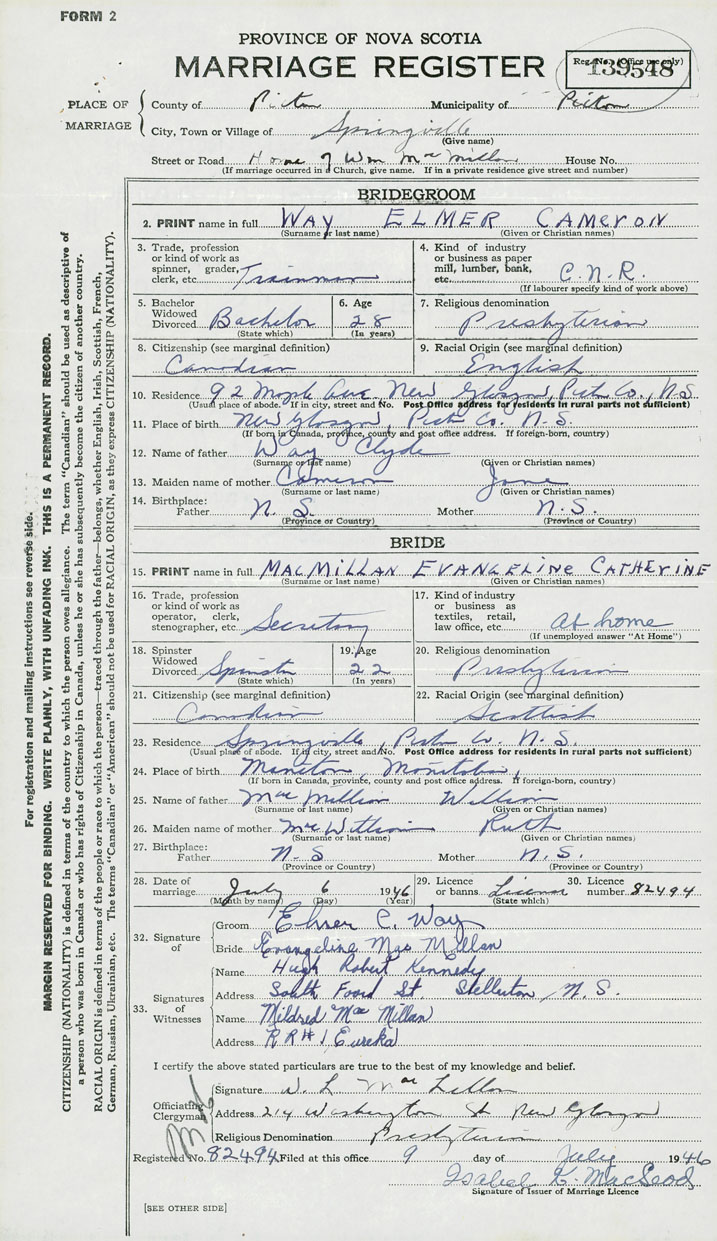 FORM 2
PROVINCE OF NOVA SCOTIA
MARRIAGE REGISTER
Reg. No. (Office use only)
139548
PLACE OF MARRIAGE
County of Pictou Municipality of Pictou
City, Town or Village of Springville
(Give name)
Street or Road Home of Wm MacMillan House No.
(If marriage occurred in a Church, give name. If in a private residence give street and number)
BRIDEGROOM
2. PRINT name in full WAY ELMER CAMERON
(Surname or last name) (Given or Christian names)
3. Trade, profession or kind of work as spinner, grader, clerk, etc. Trainman
4. Kind of industry or business as paper mill, lumber, bank, etc. C.N.R.
(If labourer specify kind of work above)
5. Bachelor Widowed Divorced Bachelor
(State which)
6. Age 28
(In years)
7. Religious denomination Presbyterian
8. Citizenship (see marginal definition) Canadian
9. Racial Origin (see marginal definition) English
10. Residence 92 Maple Ave. New Glasgow, Pict Co., N.S.
(Usual place of abode. If in city, street and No. Post Office address for residents in rural parts not sufficient)
11. Place of birth New Glasgow, Pict Co. N.S.
(If born in Canada, province, county and post office address. If foreign-born, country)
12. Name of father Way Clyde
(Surname or last name) (Given or Christian names)
13. Maiden name of mother Cameron Jane
(Surname or last name) (Given or Christian names)
14. Birthplace: Father N.S. Mother N.S.
(Province or Country) (Province or Country)
BRIDE
15. PRINT name in full MACMILLAN EVANGELINE CATHERINE
(Surname or last name) (Given or Christian names)
16. Trade, profession or kind of work as operator, clerk, stenographer, etc. Secretary
17. Kind of industry or business as textiles, retail, law office, etc. At home
(If unemployed answer "At Home")
18. Spinster Widowed Divorced Spinster
(State which)
19. Age 22
(In years)
20. Religious denomination Presbyterian
21. Citizenship (see marginal definition) Canadian
22. Racial Origin (see marginal definition) Scottish
23. Residence Springville, Pict Co. N.S.
(Usual place of abode. If in city, street and No. Post Office address for residents in rural parts not sufficient)
24. Place of birth Manitou, Manitoba
(If born in Canada, province, county and post office address. If foreign-born, country)
25. Name of father MacMillan William
(Surname or last name) (Given or Christian names)
26. Maiden name of mother Ruth
(Surname or last name) (Given or Christian names)
27. Birthplace: Father N.S Mother N.S.
(Province or Country) (Province or Country)
28. Date of marriage July 6 1946
(Month by name) (Day) (Year)
29. Licence or banns License
(State which)
30. Licence number 82494
32. Signature of
Groom Elmer C. Way
Bride Evangeline MacMillan
33. Signatures of Witnesses
Name Hugh Robert Kennedy
Address South Foord St. Stellarton, N.S.
Name Mildred MacMillan
Address RR#1 Eureka
I certify the above stated particulars are true to the best of my knowledge and belief.
Officiating Clergyman
Signature
Address 214 Washington St New Glasgow
Religious Denomination Presbyterian
Registered No. 82494 Filed at this office 9 day of July 1946
Isabel K. MacLeod
Signature of Issuer of Marriage Licence
[SEE OTHER SIDE]
For registration and mailing instructions see reverse side.
MARGIN RESERVED FOR BINDING. WRITE PLAINLY, WITH UNFADING INK. THIS IS A PERMANENT RECORD.
CITIZENSHIP (NATIONALITY) is defined in terms of the country to which the person owes allegiance. The term "Canadian" should be used as descriptive of
a person who was born in Canada or who has rights of Citizenship in Canada, unless he or she has subsequently become the citizen of another country.
RACIAL ORIGIN is defined in terms of the people or race to which the person—traced through the father—belongs, whether English, Irish, Scottish, French,
German, Russian, Ukrainian, etc. The terms "Canadian" or "American" should not be used for RACIAL ORIGIN, as they express CITIZENSHIP (NATIONALITY).